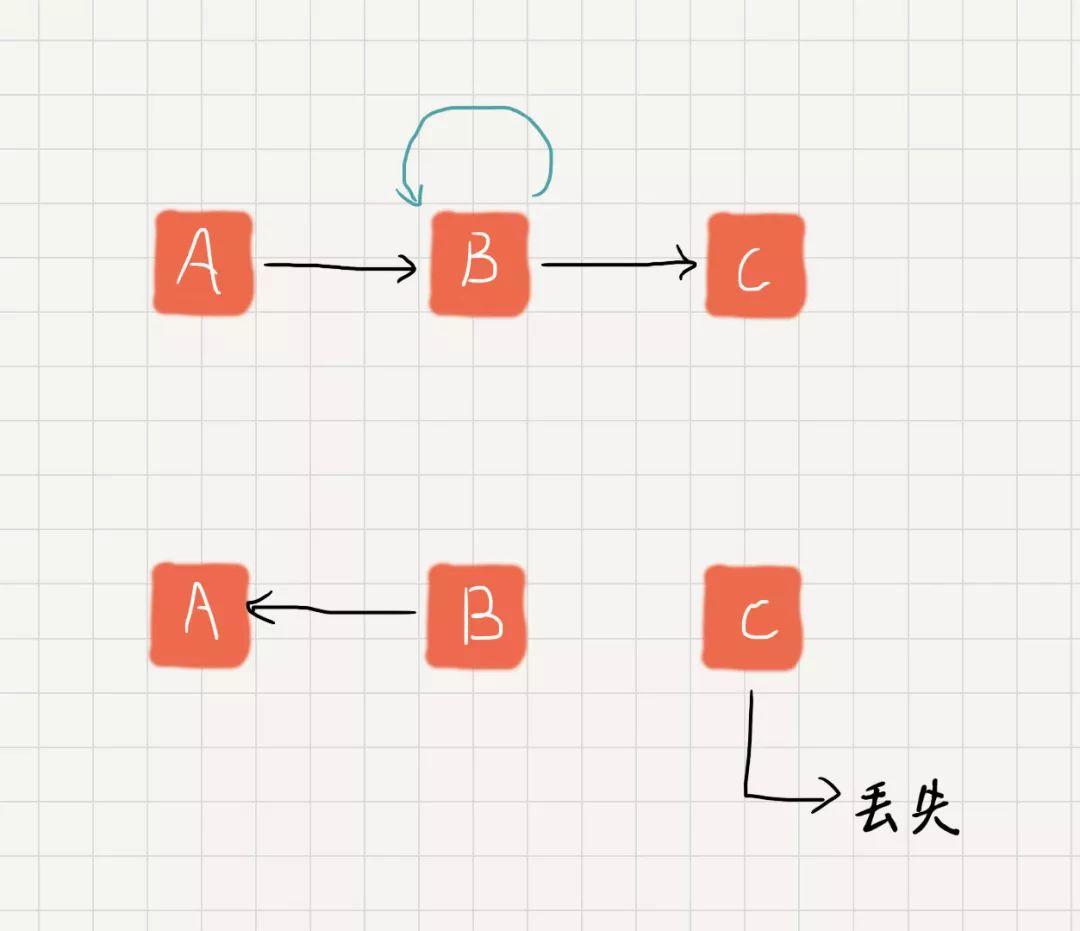 A B C
A B C
丢失